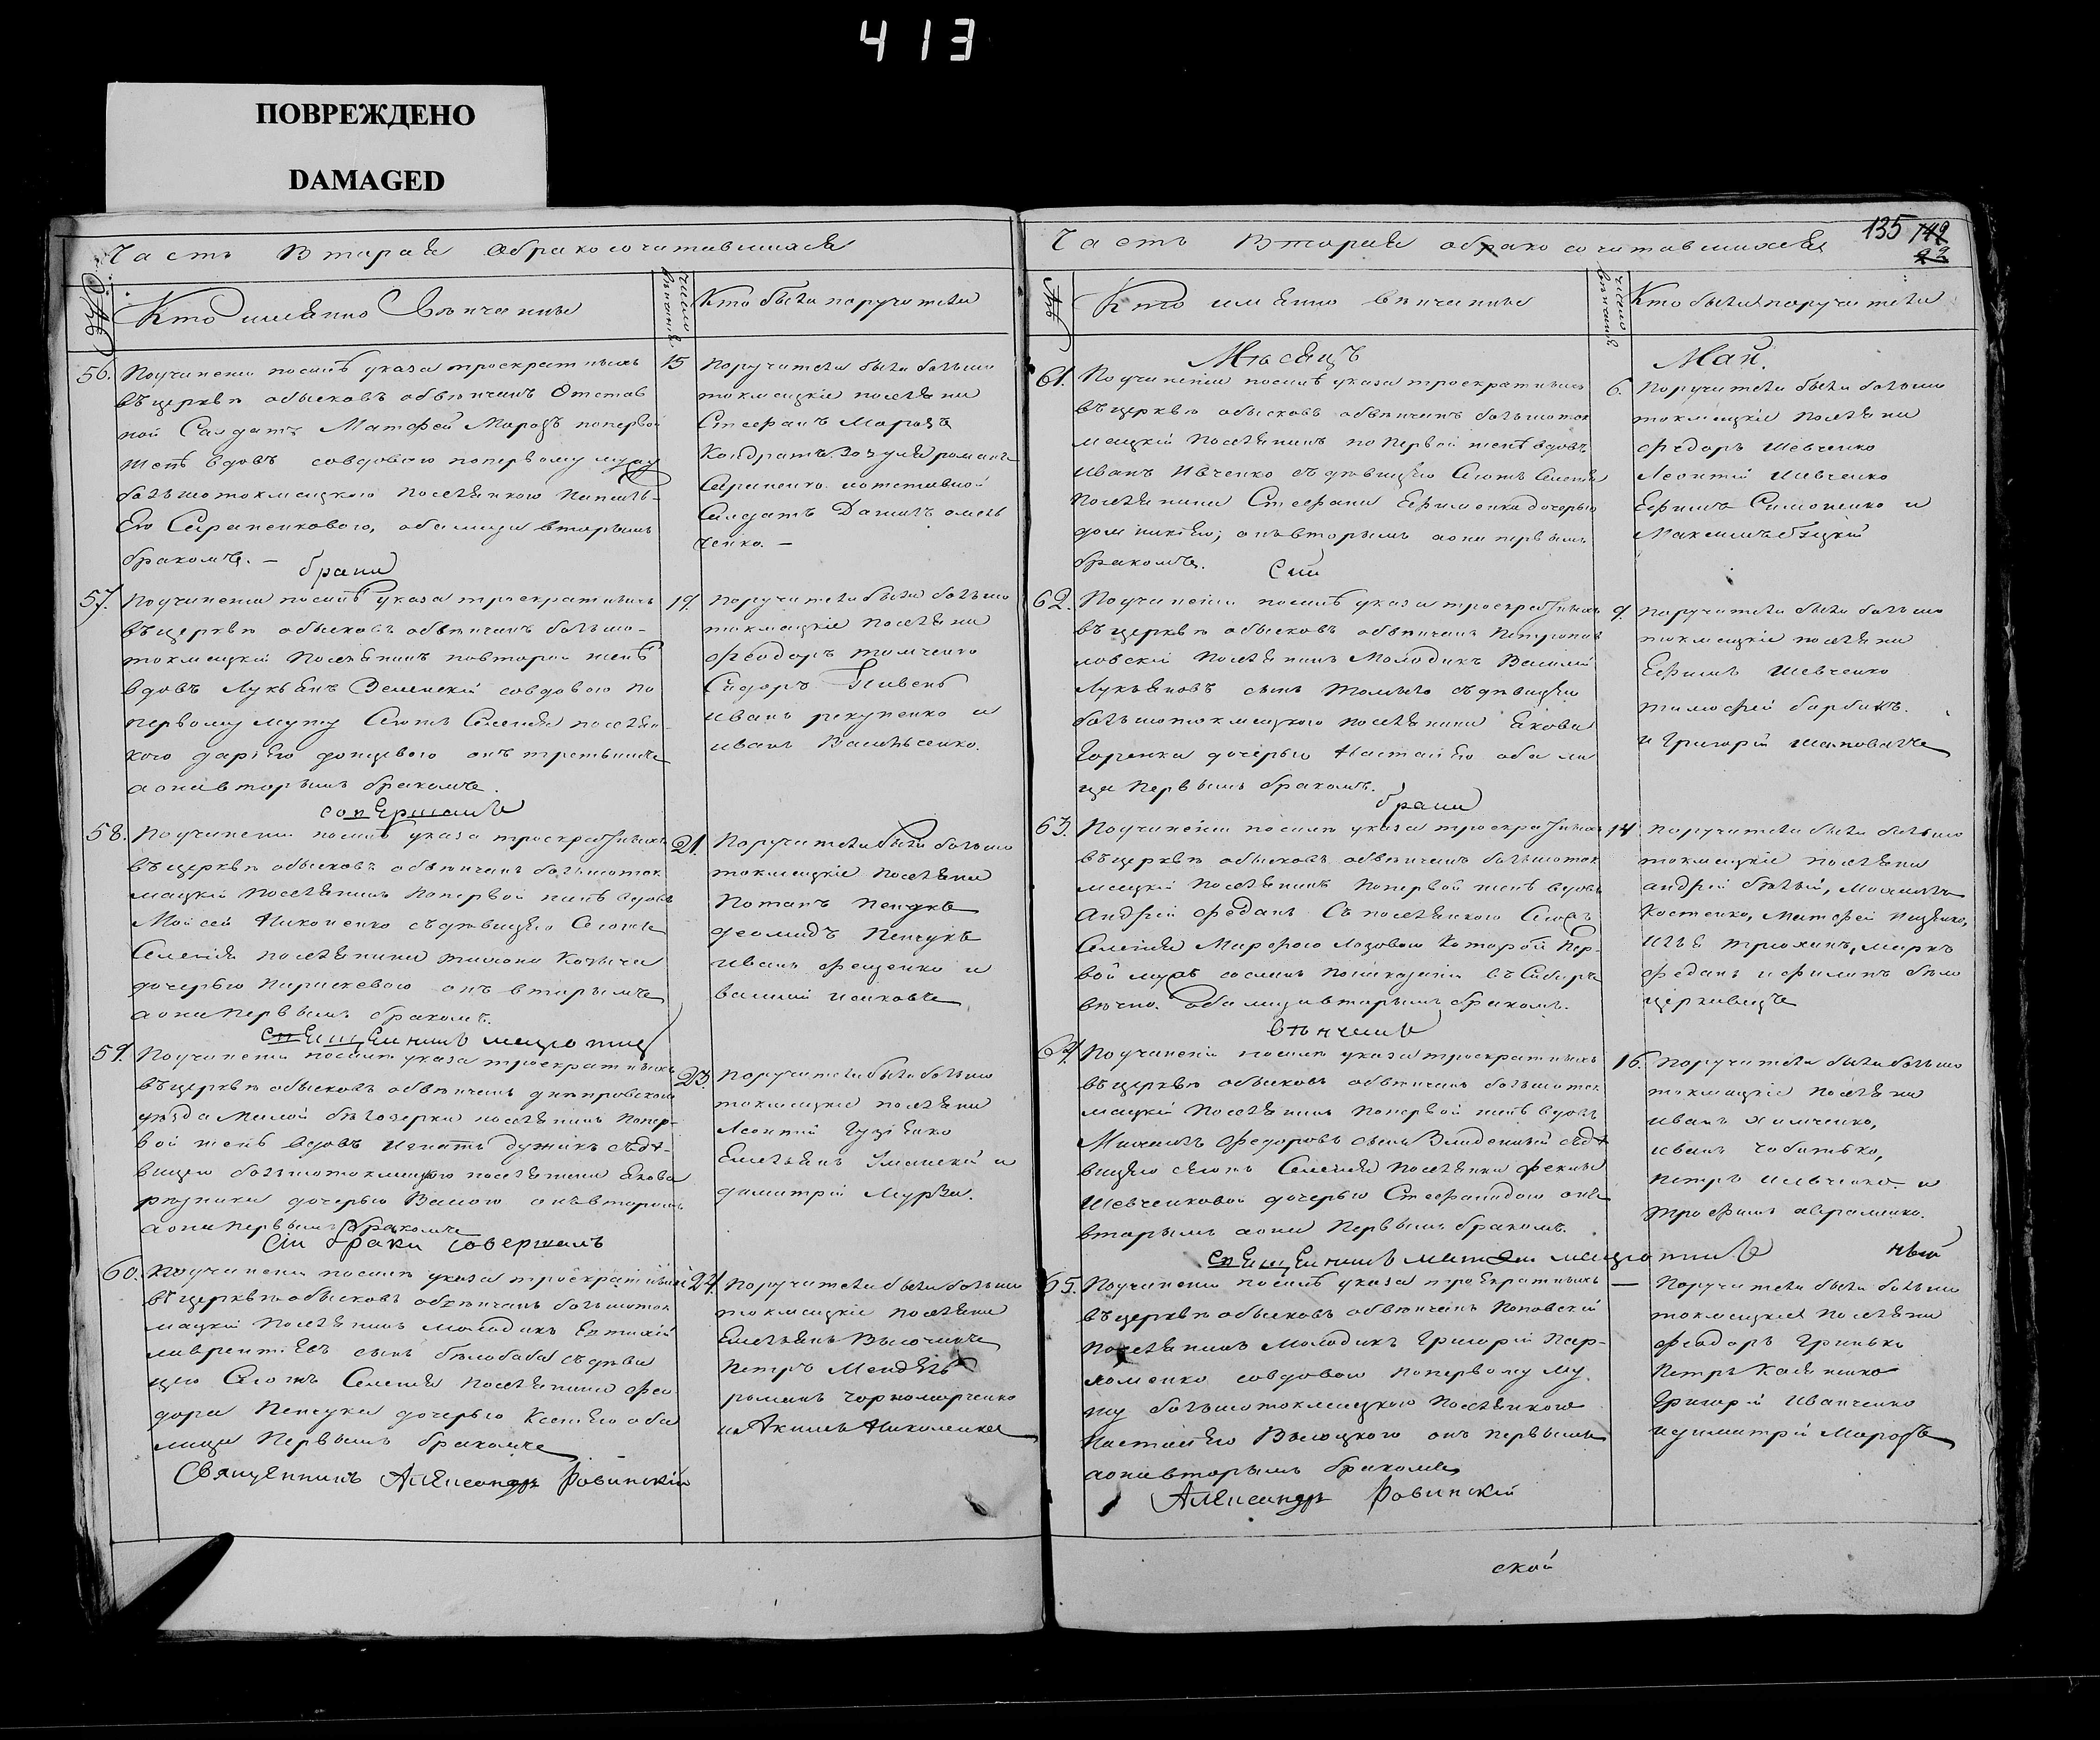 413
ПОВРЕЖДЕНО
DAMAGED
Часть Вторая Обракосочитавшихся
№
Кто имянно Вѣнчанны
число вѣнчанія
Кто были поручители
56.
Поучинени посилѣ указа троекратныхъ
въ церквѣ обысковъ обвѣнчанъ Отстав
ной Салдатъ Матфей Морозъ поперьвой
женѣ вдовъ совдовою поперьвому мужу
большотокмацкого поселянкою
обалица вторымъ
бракомъ. –
15
Поручители были большо
токмацкіе поселяни
Стефанъ Морозъ
Кондратъ Зозуля романъ
и отставной
Салдатъ Данилъ омель
ченко. –
браки
57.
Поучинени посилѣ указа троекратныхъ
въ церквѣ обысковъ обвѣнчанъ большо-
токмацкій Поселянинъ повторой женѣ
вдовъ Лукьянъ Зеленскій совдовою по
первому мужу Сіожъ Селенія поселян
кою даріею донцевою онъ третьимъ
а она вторымъ бракомъ.
19.
поручители были большо
токмацкіе поселяни
Феодоръ томченко
Сидоръ Пивень
иванъ рекуненко и
иванъ Василѣченко.
совершалъ
58.
Поучинени посилѣ указа троекратныхъ
въ церквѣ обысковъ обвѣнчанъ большоток
мацкій поселянинъ поперьвой женѣ вдовъ
Мойсей Никоненко съ дѣвицею Сіожъ
Селенія поселянина
дочерью Параскевою онъ вторымъ
а она первымъ бракомъ.
21.
Поручители были большо
токмацкіе поселяни
Потапъ Пенчукъ
деомидъ Пенчукъ
иванъ Фещенко и
василій исаковъ
священникъ
59.
Поучинени посилѣ указа троекратныхъ
въ церквѣ обысковъ обвѣнчанъ днѣпровскаго
уѣзда Малой бѣлозерки поселянинъ Попер-
вой женѣ вдовъ Игнатъ Дужикъ съ дѣ-
вицею большотокмацкого поселянина Якова
рѣзника дочерью онъ вторымъ
а она первымъ бракомъ
23.
Поручители были большо
токмацкіе поселяни
Леонтій Гузенко
Емельянъ Уманскій и
димитрій Мурза.
Сіи браки совершалъ
60.
Поучинени посилѣ указа троекратныхъ
въ церквѣ обысковъ обвѣнчанъ большоток
мацкій Поселянинъ молодикъ Евтихій
лаврентіевъ сынъ бѣлобаба съ дѣви
цею Сіожъ Селенія Поселянина Фео
дора Пенчука дочерью Ксеніею оба
лица Первымъ бракомъ
24.
Поручители были большо
токмацкіе поселяни
Емельянъ Височинъ
Петръ Мендель
романъ чорноморченко
и Акимъ Николенко
Священникъ Александръ Ровинскій
Часть Вторая обракосочитавшихся
135
142
22
№
Кто имянно вѣнчанны
число вѣнчанія
Кто были поручители
Мѣсяцъ
Май.
61.
Поучинени посилѣ указа троекратныхъ
въ церквѣ обысковъ обвѣнчанъ большоток
мацкій Поселянинъ поперьвой женѣ вдовъ
иванъ Ивченко съ дѣвицею Сіожъ Селенія
Поселянина Стефана Ефименка дочерью
домникіею, онъ вторымъ а она первымъ
бракомъ.
6.
Поручители были большо
токмацкіе поселяни
Федоръ Шевченко
Леонтій Шевченко
Ефимъ Симоненко и
Максимъ бѣцкій
Сіи
62.
Поучинени посилѣ указа троекратныхъ
въ церквѣ обысковъ обвѣнчанъ Петропав
ловскій Поселянинъ Молодикъ Василій
Лукьяновъ сынъ съ дѣвицею
большотокмацкого поселянина Якова
Горенка дочерью Настасіею оба ли
ца Первымъ бракомъ.
9.
Поручители были большо
токмацкіе поселяни
Ефимъ Шевченко
тимофей барбакъ.
и Григорій шаповалъ
браки
63.
Поучинени посилѣ указа троекратныхъ
въ церквѣ обысковъ обвѣнчанъ большоток
мацкій Поселянинъ Поперьвой женѣ вдовъ
Андрій Феданъ Съ поселянкою Сіожъ
Селенія Марфою Лозовою Которой Пер-
вой мужъ сосланъ въ Сибирь
вѣчно. оба лица вторымъ бракомъ.
14
поручители были большо
токмацкіе поселяни
андрій бѣлый,
Костенко, Матфей
Илья трюханъ, марко
феданъ и филипъ бѣло
церковецъ
вѣнчалъ
64.
Поучинени посилѣ указа троекратныхъ
въ церквѣ обысковъ обвѣнчанъ большоток
мацкій Поселянинъ Поперьвой женѣ вдовъ
Михаилъ Федоровъ сынъ съ дѣ
вицею сіожъ Селенія Поселянки Феклы
Шевченковой дочерью Стефанидою онъ
вторымъ а она Первымъ бракомъ.
16.
поручители были большо
токмацкіе Поселяни
иванъ Хомченко,
иванъ чобитько,
Петръ Шевченко и
трофимъ авраменко.
священникъ
65.
Поучинени посилѣ указа троекратныхъ
въ церквѣ обысковъ обвѣнчанъ Поповскій
Поселянинъ Молодикъ Григорій Пар-
хоменко совдовою поперьвому му
жу большотокмацкого Поселянкою
Настасіею Высоцкого онъ первымъ
а она вторымъ бракомъ
—
Поручители были большо
токмацкіе Поселяни
Феодоръ Гринько
Петръ
Григорій Иванченко
и димитрій Морозъ
Александръ Ровинскій
ской